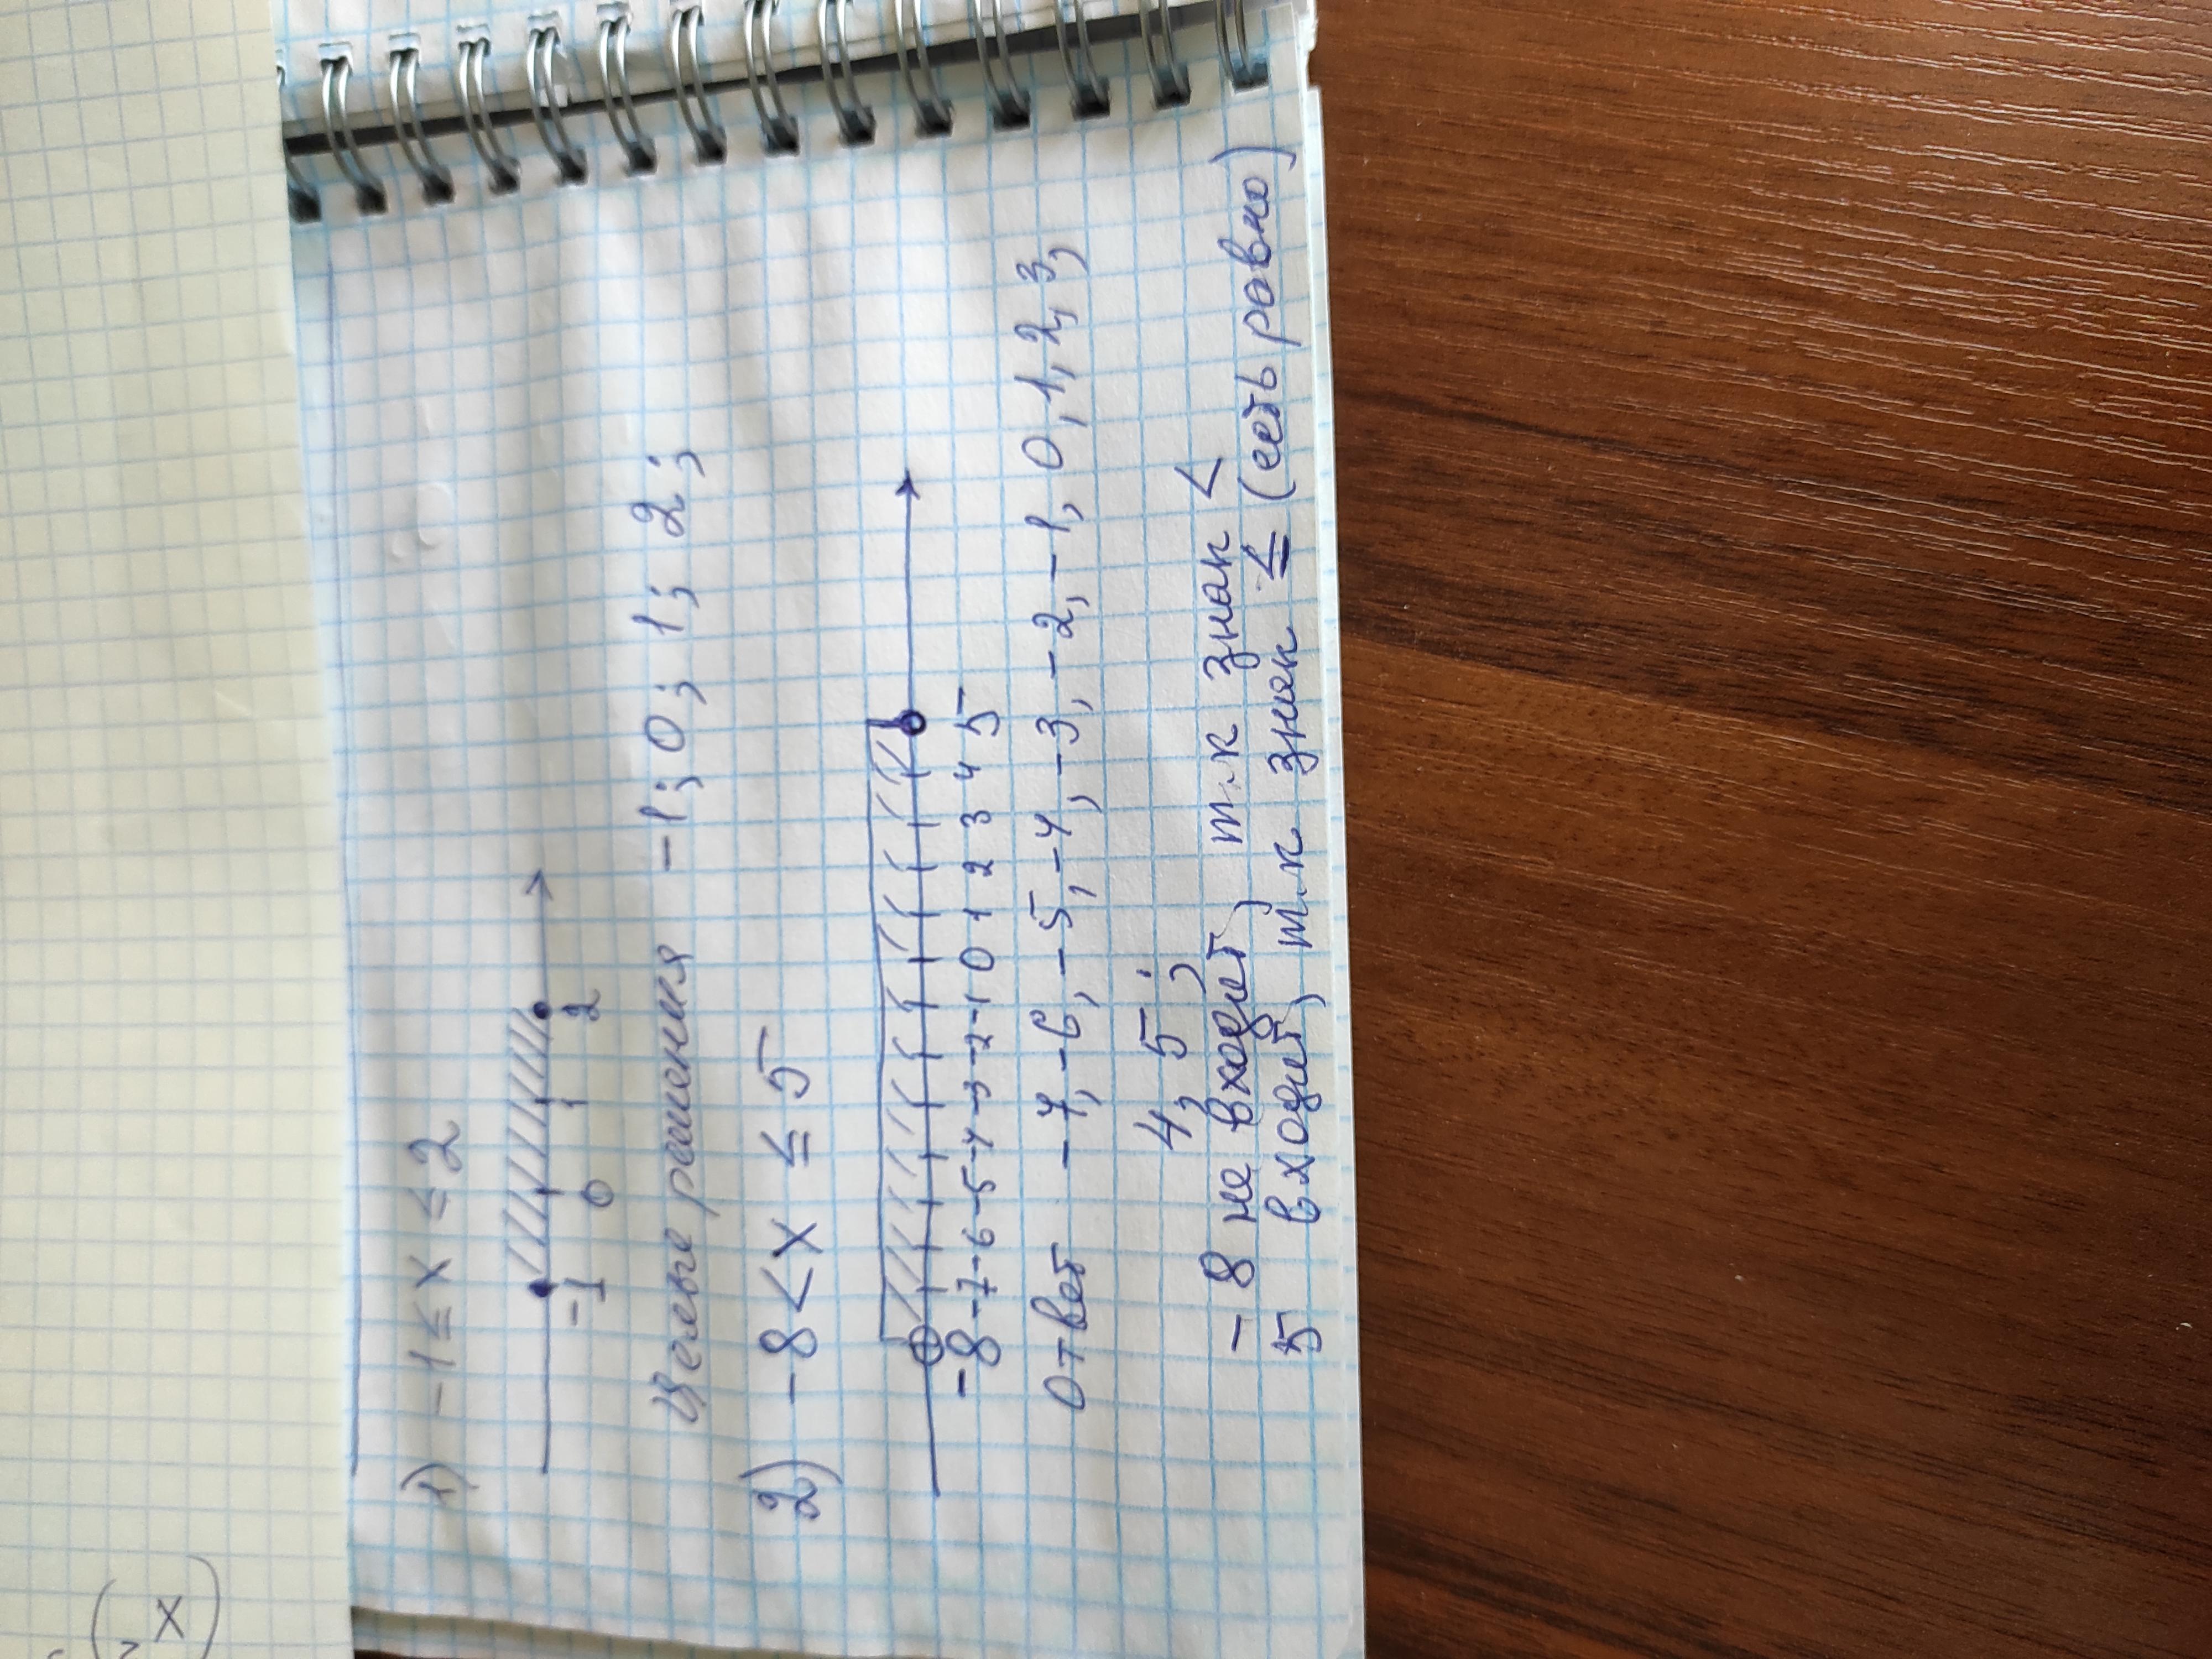 1) -1 ≤ x ≤ 2
-1 0 1 2
Целые решения -1; 0; 1; 2;
2) -8 < x ≤ 5
-8 -7 -6 -5 -4 -3 -2 -1 0 1 2 3 4 5
Ответ -7, -6, -5, -4, -3, -2, -1, 0, 1, 2, 3,
4, 5;
-8 не входит, т.к знак <
5 входит, т.к знак ≤ (есть равно)
x)